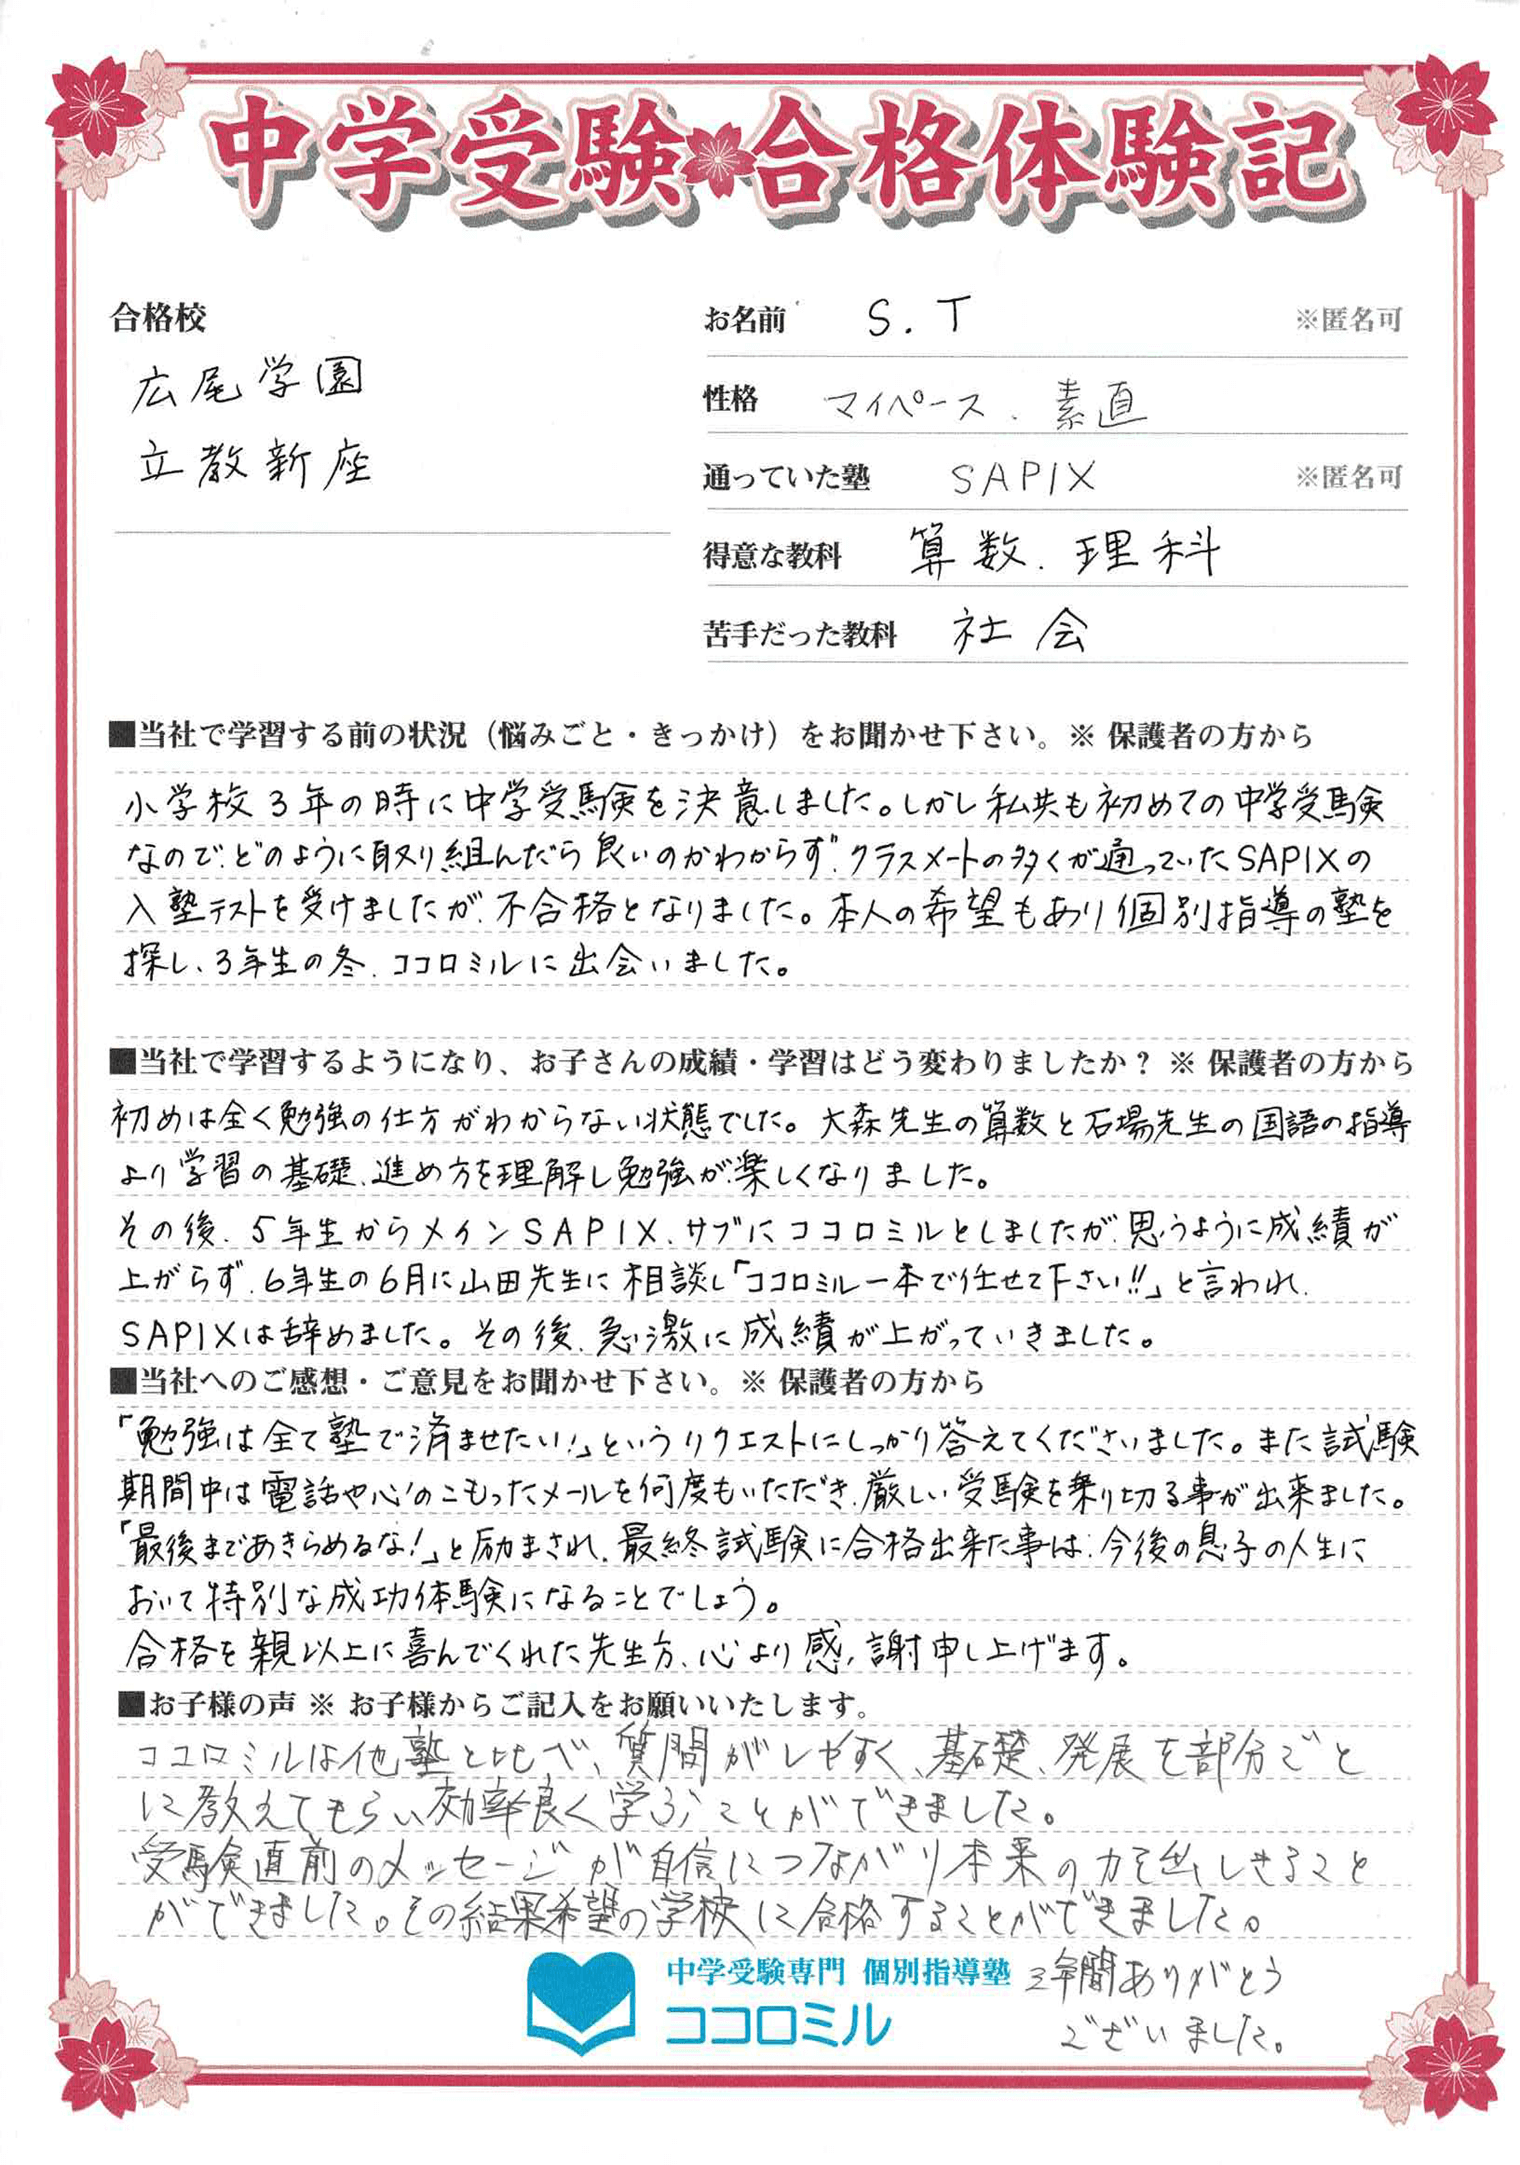 中学受験 合格体験記
合格校
広尾学園
立教新座
お名前 S.T ※匿名可
性格 マイペース、素直
通っていた塾 SAPIX ※匿名可
得意な教科 算数、理科
苦手だった教科 社会
■当社で学習する前の状況（悩みごと・きっかけ）をお聞かせ下さい。※ 保護者の方から
小学校3年の時に中学受験を決意しました。しかし私共も初めての中学受験
なので、どのように取り組んだら良いのかわからず、クラスメートの多くが通っていたSAPIXの
入塾テストを受けましたが、不合格となりました。本人の希望もあり個別指導の塾を
探し、3年生の冬、ココロミルに出会いました。
■当社で学習するようになり、お子さんの成績・学習はどう変わりましたか？ ※ 保護者の方から
初めは全く勉強の仕方がわからない状態でした。大森先生の算数と石場先生の国語の指導
より学習の基礎、進め方を理解し勉強が楽しくなりました。
その後、5年生からメインSAPIX、サブにココロミルとしましたが、思うように成績が
上がらず、6年生の6月に山田先生に相談し「ココロミル一本で任せて下さい!!」と言われ、
SAPIXは辞めました。その後、急激に成績が上がっていきました。
■当社へのご感想・ご意見をお聞かせ下さい。※ 保護者の方から
「勉強は全て塾で済ませたい!」というリクエストにしっかり答えてくださいました。また試験
期間中は電話や心のこもったメールを何度もいただき、厳しい受験を乗り切る事が出来ました。
「最後まであきらめるな!」と励まされ、最終試験に合格出来た事は、今後の息子の人生に
おいて特別な成功体験になることでしょう。
合格を親以上に喜んでくれた先生方、心より感謝申し上げます。
■お子様の声 ※ お子様からご記入をお願いいたします。
ココロミルは他塾と比べ、質問がしやすく、基礎、発展を部分ごと
に教えてもらい効率良く学ぶことができました。
受験直前のメッセージが自信につながり本来の力を出しきること
ができました。その結果希望の学校に合格することができました。
中学受験専門 個別指導塾 3年間ありがとう
ココロミル ございました。